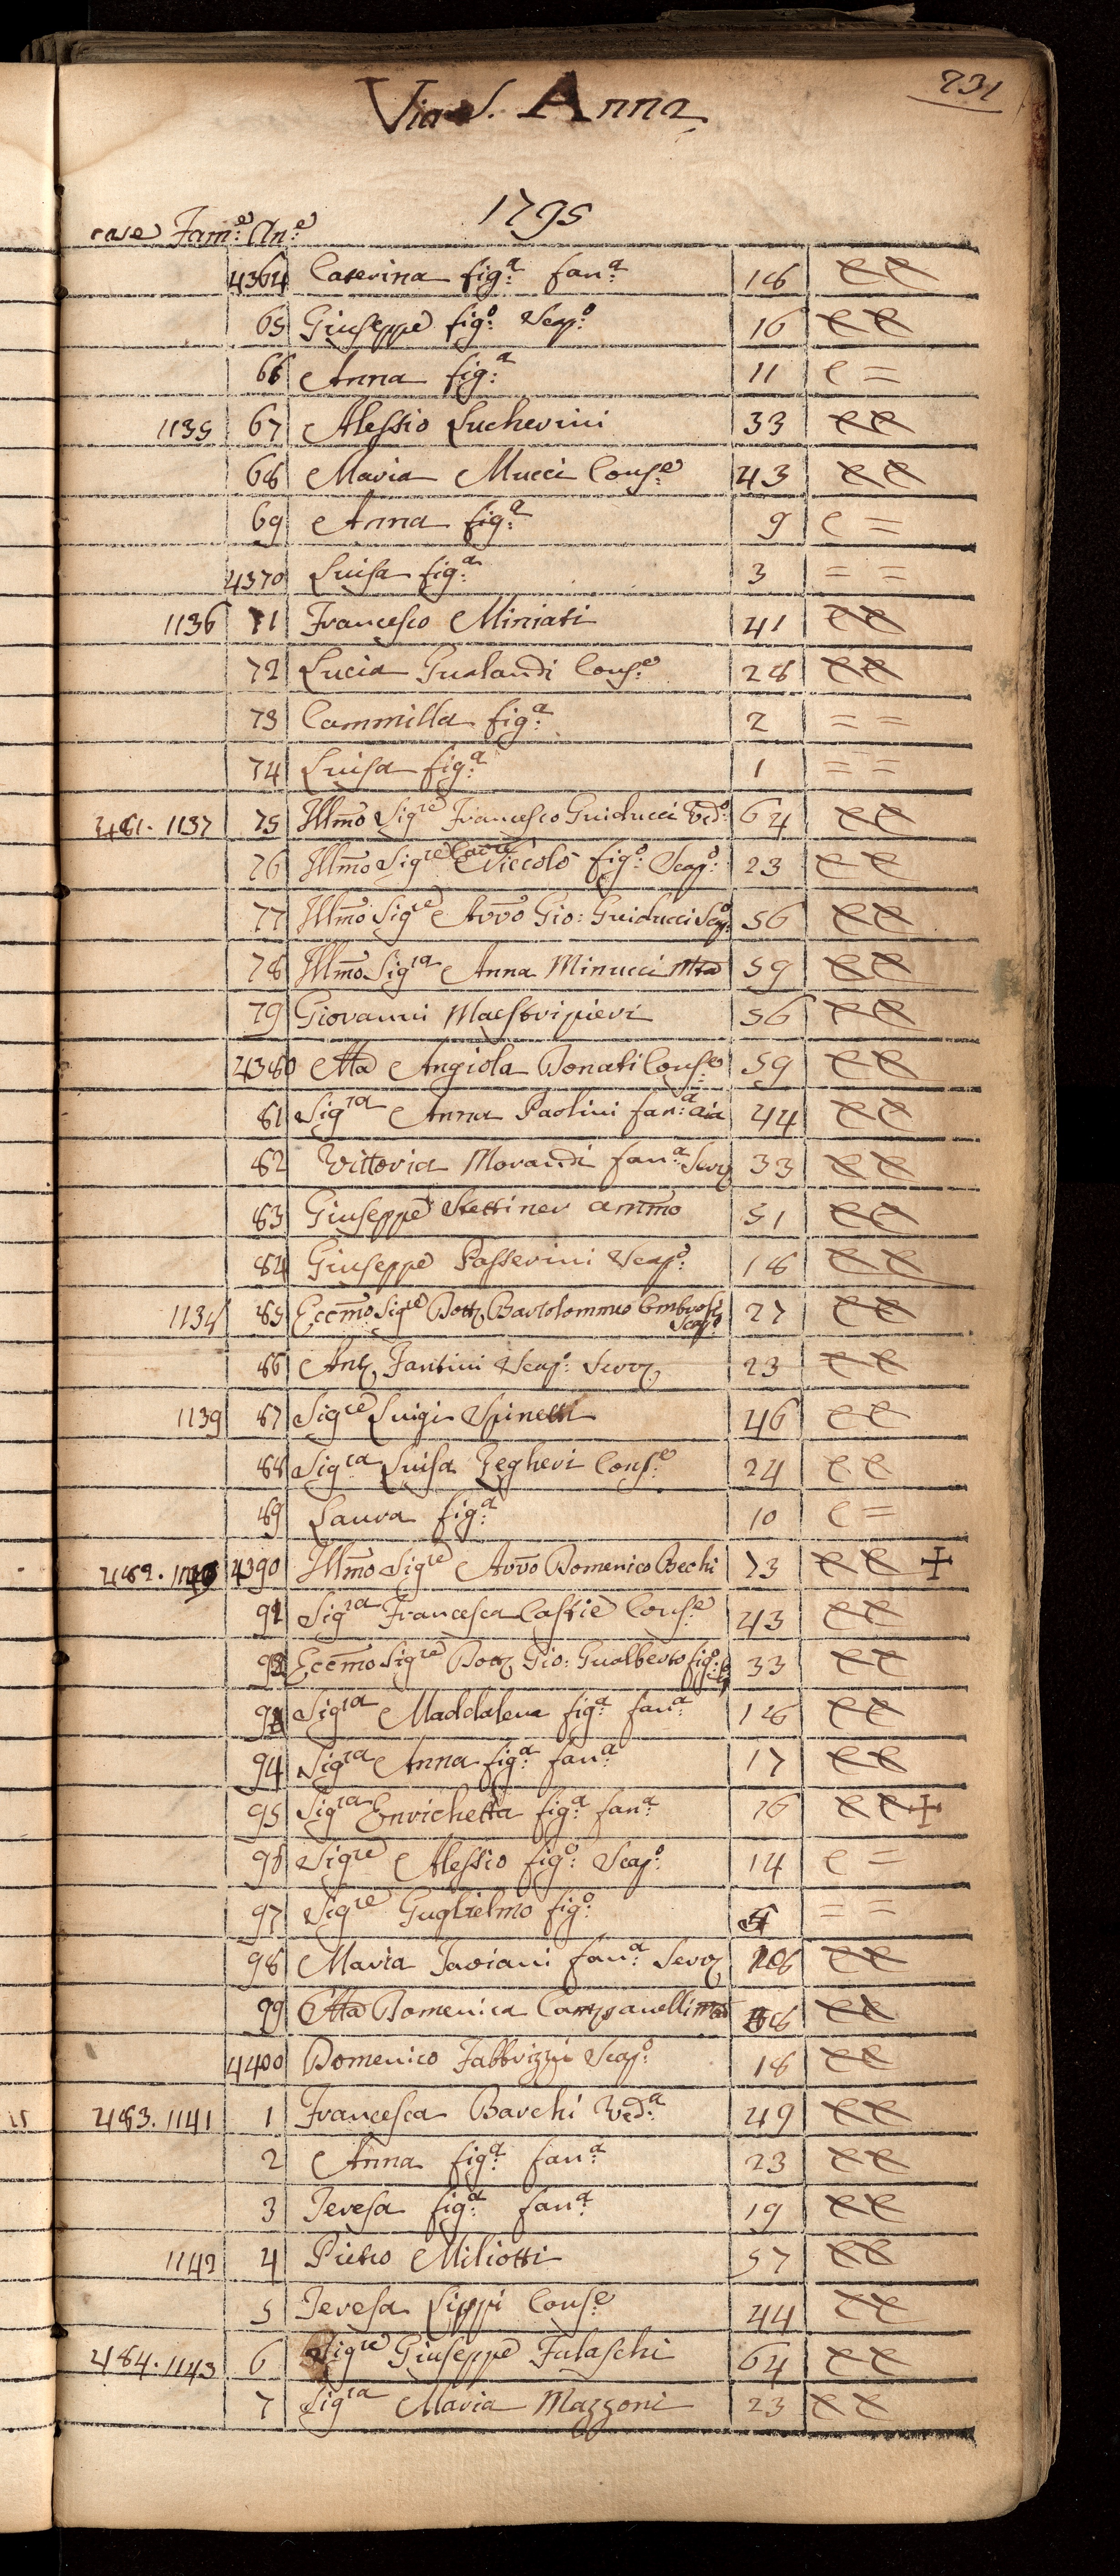 231
Via S. Anna
1795
case Fam:e An:e
4364 Caterina fig:a fan:a 18 CC
65 Giuseppe fig:o Scap:o 16 CC
66 Anna fig:a 11 C =
1135 67 Alessio Lucherini 33 CC
68 Maria Mucci Cons:e 43 CC
69 Anna fig:a 9 C =
4370 Luisa fig:a 3 = =
1136 71 Francesco Miniati 41 CC
72 Lucia Gualandi Cons:e 28 CC
73 Cammilla fig:a 2 = =
74 Luisa fig:a 1 = =
481. 1137 75 Illmo Sigre Francesco Guiducci Ved:o 64 CC
76 Illmo Sigre Cavre Niccolò fig:o Scap:o 23 CC
77 Illmo Sigre Avvo Gio: Guiducci Scap:o 56 CC
78 Illmo Sigra Anna Minucci Mta 59 CC
79 Giovanni Maestripieri 56 CC
4380 Mta Angiola Donati Cons:e 59 CC
81 Sigra Anna Paolini fan:a aia 44 CC
82 Vittoria Morandi fan:a Serv 33 CC
83 Giuseppe Stettiner ammo 51 CC
84 Giuseppe Passerini Scap:o 18 CC
1138 85 Eccmo Sigre Dott Bartolommeo Combrosi Scap:o 27 CC
86 Ant Fantini Scap: Serv 23 CC
1139 87 Sigre Luigi Spinelli 46 CC
88 Sigra Luisa Gegheri Cons:e 24 CC
89 Laura fig:a 10 C =
482. 1140 4390 Illmo Sigre Avvo Domenico Bechi 73 CC +
91 Sigra Francesca Castie Cons:e 43 CC
92 Eccmo Sigre Dott Gio: Gualberto fig:o 33 CC
93 Sigra Maddalena fig:a fan:a 18 CC
94 Sigra Anna fig:a fan:a 17 CC
95 Sigra Enrichetta fig:a fan:a 16 CC +
96 Sigre Alessio fig:o Scap:o 14 C =
97 Sigre Guglielmo fig:o = =
98 Maria Taviani fan:a Serv CC
99 Mta Domenica Campanelli CC
4400 Domenico Fabbrizzi Scap:o 18 CC
483. 1141 1 Francesca Barchi Ved:a 49 CC
2 Anna fig:a fan:a 23 CC
3 Teresa fig:a fan:a 19 CC
1142 4 Pietro Miliotti 57 CC
5 Teresa Lippi Cons:e 44 CC
484. 1143 6 Sigre Giuseppe Falaschi 64 CC
7 Sigra Maria Mazzoni 23 CC